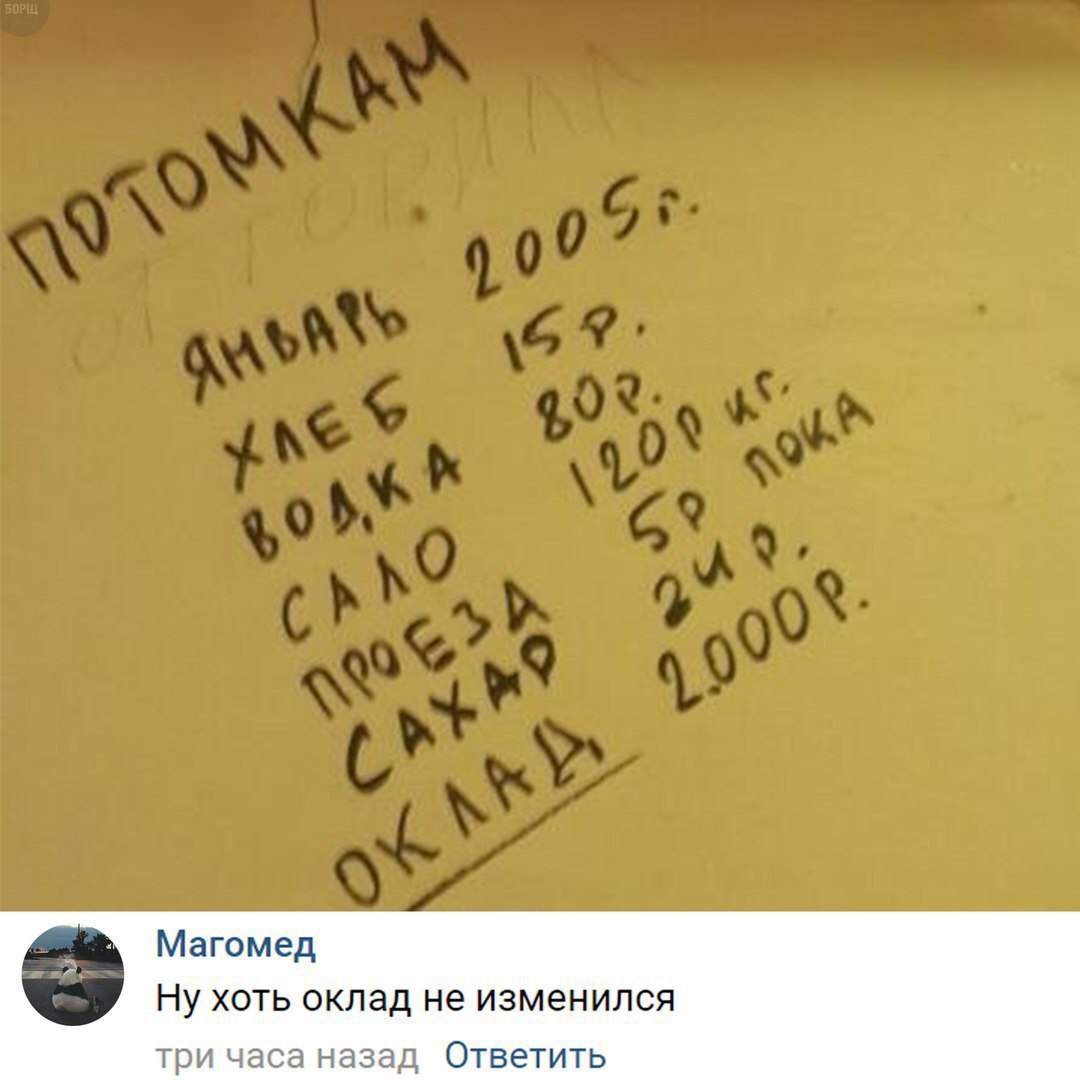 БОРЩ
ПОТОМКАМ
ЯНВАРЬ 2005 г.
ХЛЕБ 15 р.
ВОДКА 80р.
САЛО 120р кг.
ПРОЕЗД 5р пока
САХАР 24 р.
ОКЛАД 2.000р.
Магомед
Ну хоть оклад не изменился
три часа назад Ответить